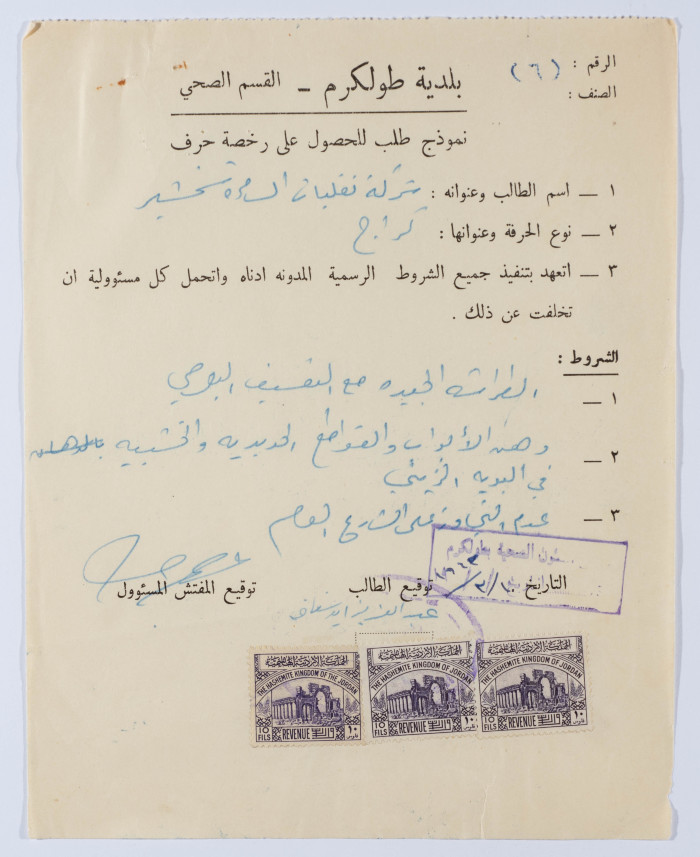 الرقم : (٦)
الصنف :
بلدية طولكرم ـ القسم الصحي
نموذج طلب للحصول على رخصة حرف
١ ـ اسم الطالب وعنوانه : شركة نقليات
٢ ـ نوع الحرفة وعنوانها : كراج
٣ ـ اتعهد بتنفيذ جميع الشروط الرسمية المدونه ادناه واتحمل كل مسئوولية ان
تخلفت عن ذلك .
الشروط :
١ ـ الطراشه الجيده مع التنظيف اليومي
٢ ـ ودهن الأبواب والقواطع الحديديه والخشبيه
في البويه الزيتي
٣ ـ عدم التجاوز على الشارع العام
شؤون الصحية بطولكرم
التاريخ
توقيع الطالب
توقيع المفتش المسئوول
عبد العزيز
المملكة الاردنية الهاشمية
THE HASHEMITE KINGDOM OF THE JORDAN
10 FILS
REVENUE
١٠ فلوس
المملكة الاردنية الهاشمية
THE HASHEMITE KINGDOM OF JORDAN
10 FILS
REVENUE
١٠ فلوس
المملكة الاردنية الهاشمية
THE HASHEMITE KINGDOM OF JORDAN
10 FILS
REVENUE
١٠ فلوس